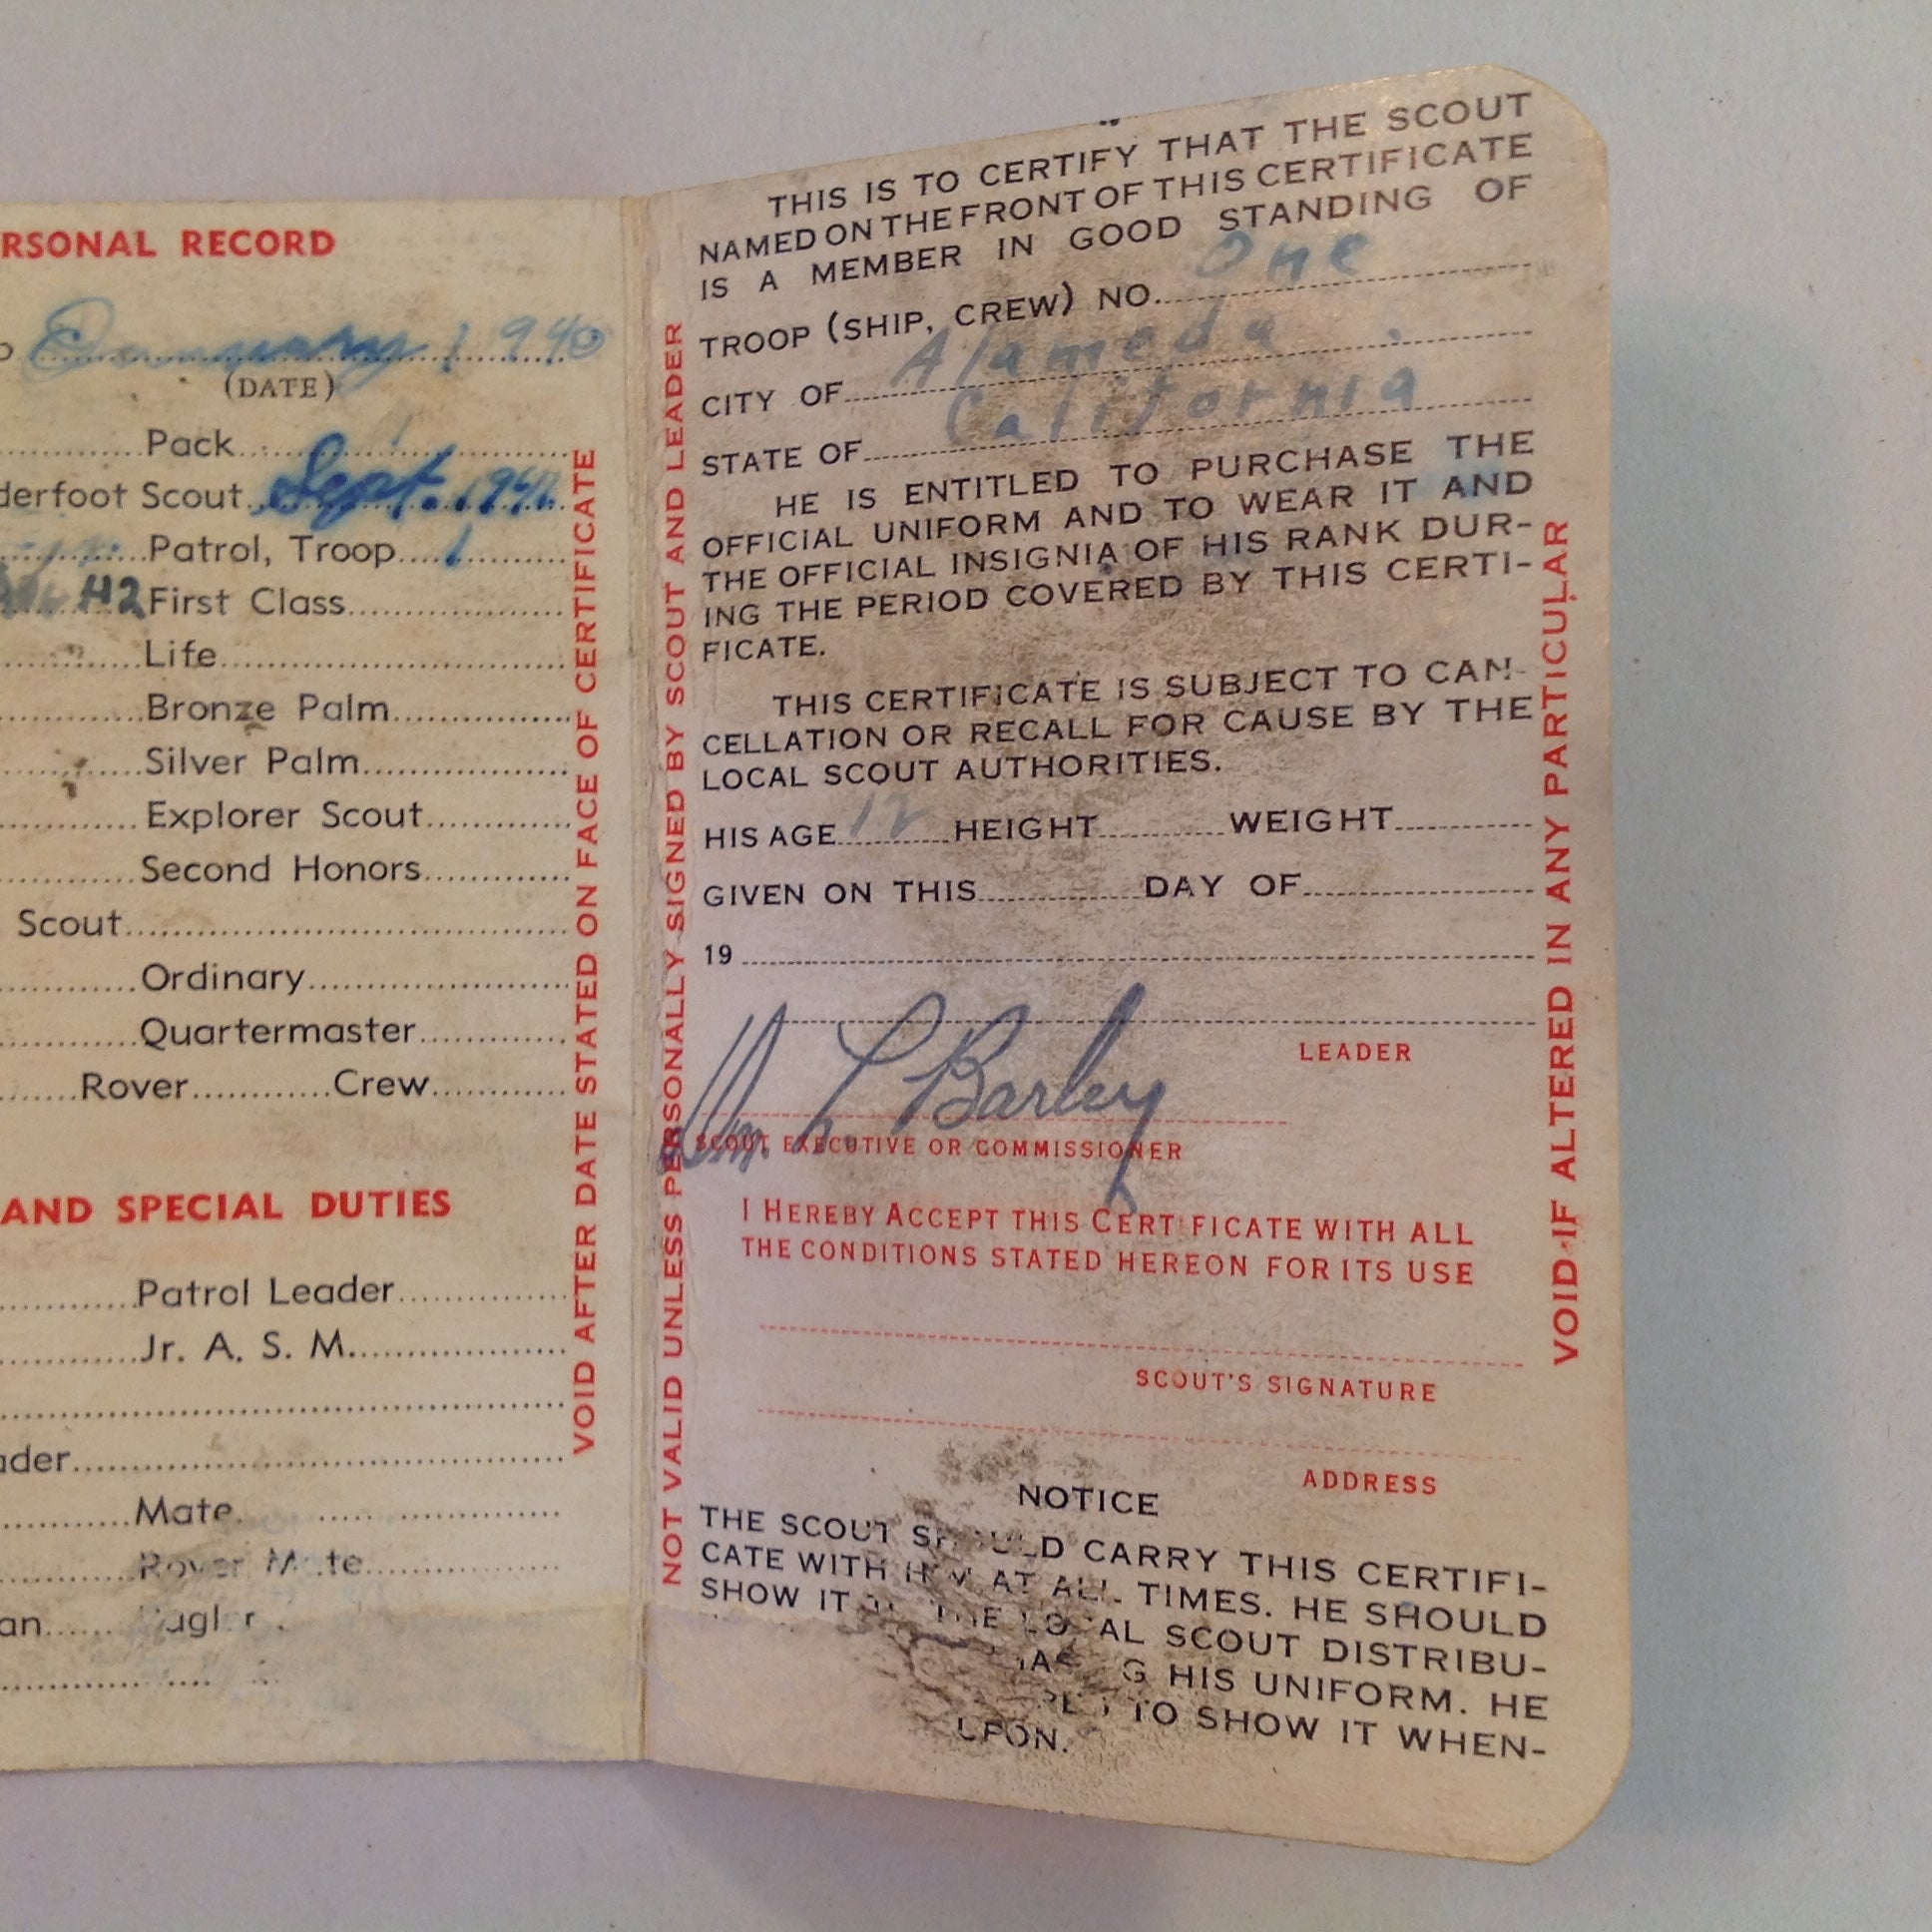 RSONAL RECORD
January 1940
(DATE)
Pack
derfoot Scout Sept. 194
Patrol, Troop 1
42 First Class
Life
Bronze Palm
Silver Palm
Explorer Scout
Second Honors
Scout
Ordinary
Quartermaster
Rover Crew
AND SPECIAL DUTIES
Patrol Leader
Jr. A. S. M.
ader
Mate
Rover Mate
an
VOID AFTER DATE STATED ON FACE OF CERTIFICATE
NOT VALID UNLESS PERSONALLY SIGNED BY SCOUT AND LEADER
THIS IS TO CERTIFY THAT THE SCOUT
NAMED ON THE FRONT OF THIS CERTIFICATE
IS A MEMBER IN GOOD STANDING OF
TROOP (SHIP, CREW) NO. One
CITY OF Alameda
STATE OF California
HE IS ENTITLED TO PURCHASE THE
OFFICIAL UNIFORM AND TO WEAR IT AND
THE OFFICIAL INSIGNIA OF HIS RANK DUR-
ING THE PERIOD COVERED BY THIS CERTI-
FICATE.
THIS CERTIFICATE IS SUBJECT TO CAN-
CELLATION OR RECALL FOR CAUSE BY THE
LOCAL SCOUT AUTHORITIES.
HIS AGE 12 HEIGHT WEIGHT
GIVEN ON THIS DAY OF
19
LEADER
Wm. L Barley
SCOUT EXECUTIVE OR COMMISSIONER
I HEREBY ACCEPT THIS CERTIFICATE WITH ALL
THE CONDITIONS STATED HEREON FOR ITS USE
SCOUT'S SIGNATURE
ADDRESS
NOTICE
THE SCOUT SHOULD CARRY THIS CERTIFI-
CATE WITH HIM AT ALL TIMES. HE SHOULD
SHOW IT THE LOCAL SCOUT DISTRIBU-
HIS UNIFORM. HE
TO SHOW IT WHEN-
UPON.
VOID IF ALTERED IN ANY PARTICULAR